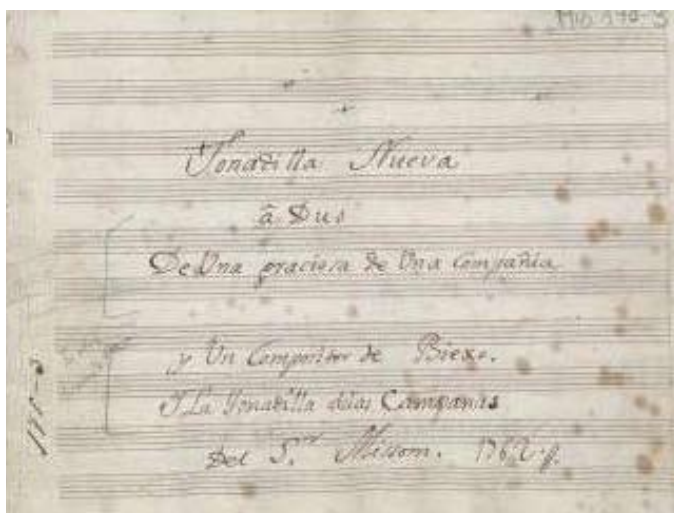 Mus 170-3
Tonadilla Nueva
â Duo
De Una graciosa de Una Compañia
y Un Compositor de Biexo.
Y La Tonadilla de las Campanas
Del S.or Misson. 1762